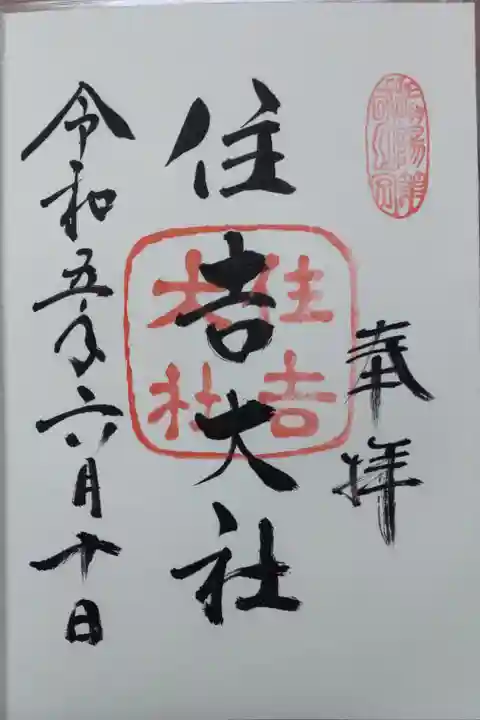 奉拝
住吉大社
住吉
大社
令和五年六月十日